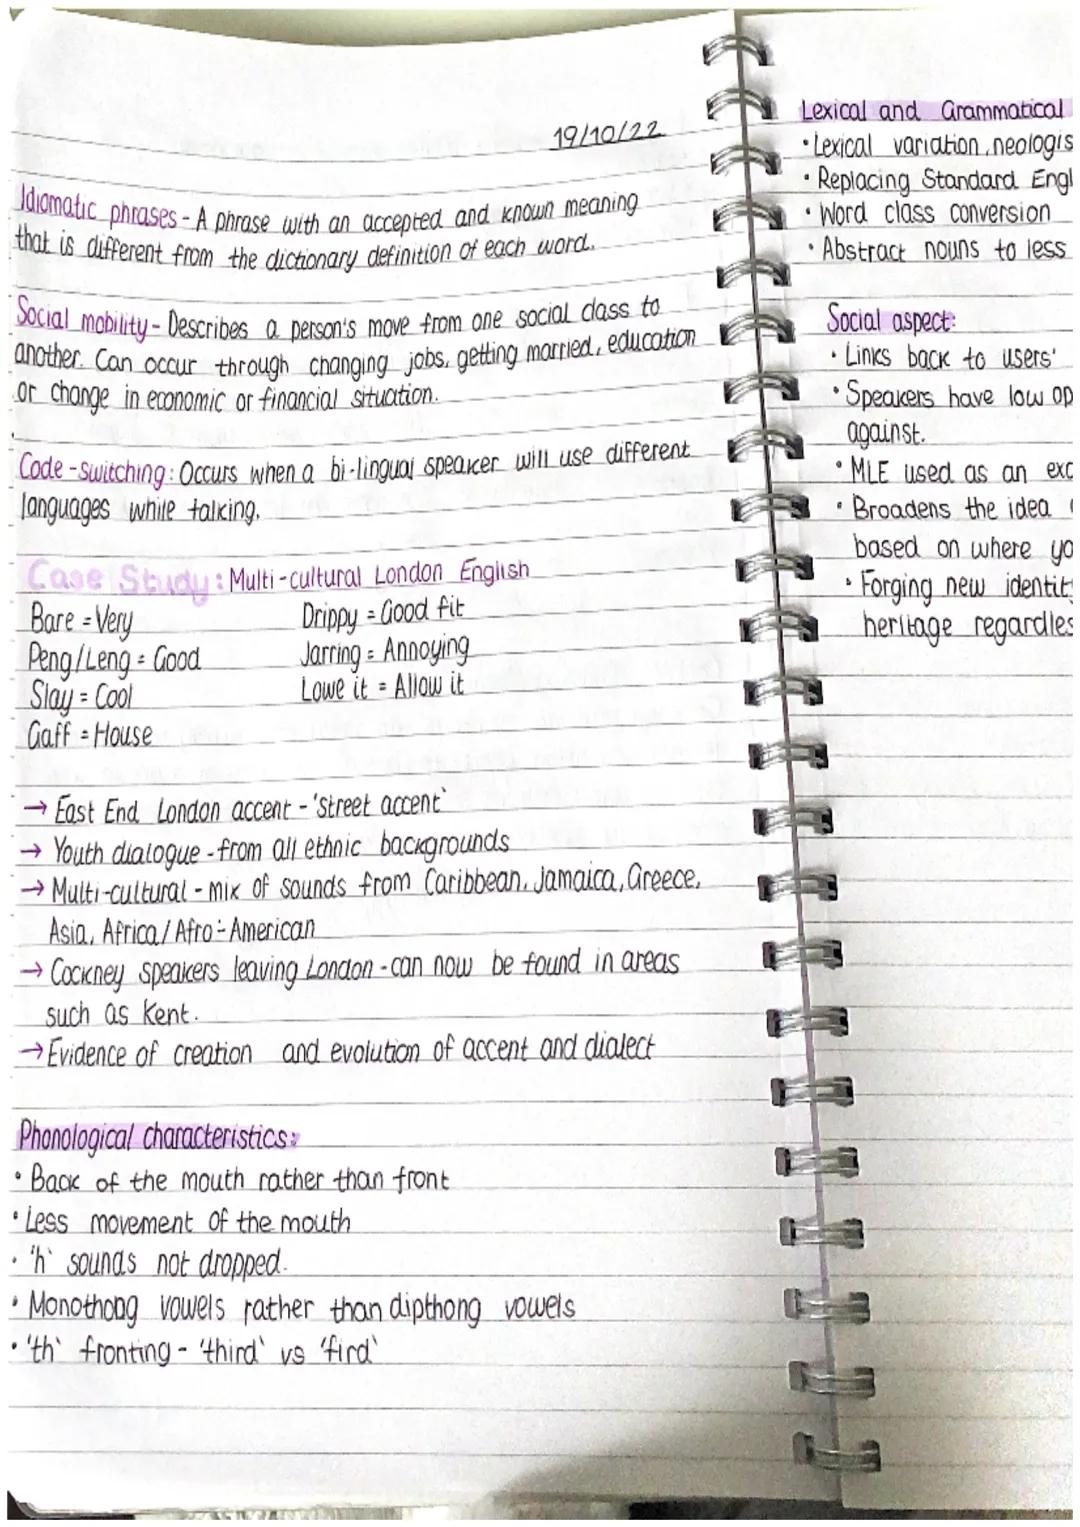 19/10/22
Idiomatic phrases - A phrase with an accepted and known meaning
that is different from the dictionary definition of each word.
Social mobility - Describes a person's move from one social class to
another. Can occur through changing jobs, getting married, education
or change in economic or financial situation.
Code-switching: Occurs when a bi-lingual speaker will use different
languages while talking.
Case Study: Multi-cultural London English
Bare = Very Drippy = Good fit
Peng/Leng = Good Jarring = Annoying
Slay = Cool Lowe it = Allow it
Gaff = House
→ East End London accent - 'street accent'
→ Youth dialogue - from all ethnic backgrounds
→ Multi-cultural - mix of sounds from Caribbean, Jamaica, Greece,
Asia, Africa/Afro-American
→ Cockney speakers leaving London - can now be found in areas
such as Kent.
→ Evidence of creation and evolution of accent and dialect
Phonological characteristics:
• Back of the mouth rather than front
• Less movement of the mouth
• 'h' sounds not dropped.
• Monothong vowels rather than dipthong vowels
• 'th' fronting - 'third' vs 'fird'
Lexical and Grammatical
• Lexical variation, neologis
• Replacing Standard Engl
• Word class conversion
• Abstract nouns to less
Social aspect:
• Links back to users'
• Speakers have low op
against.
• MLE used as an exc
• Broadens the idea
based on where yo
• Forging new identity
heritage regardles